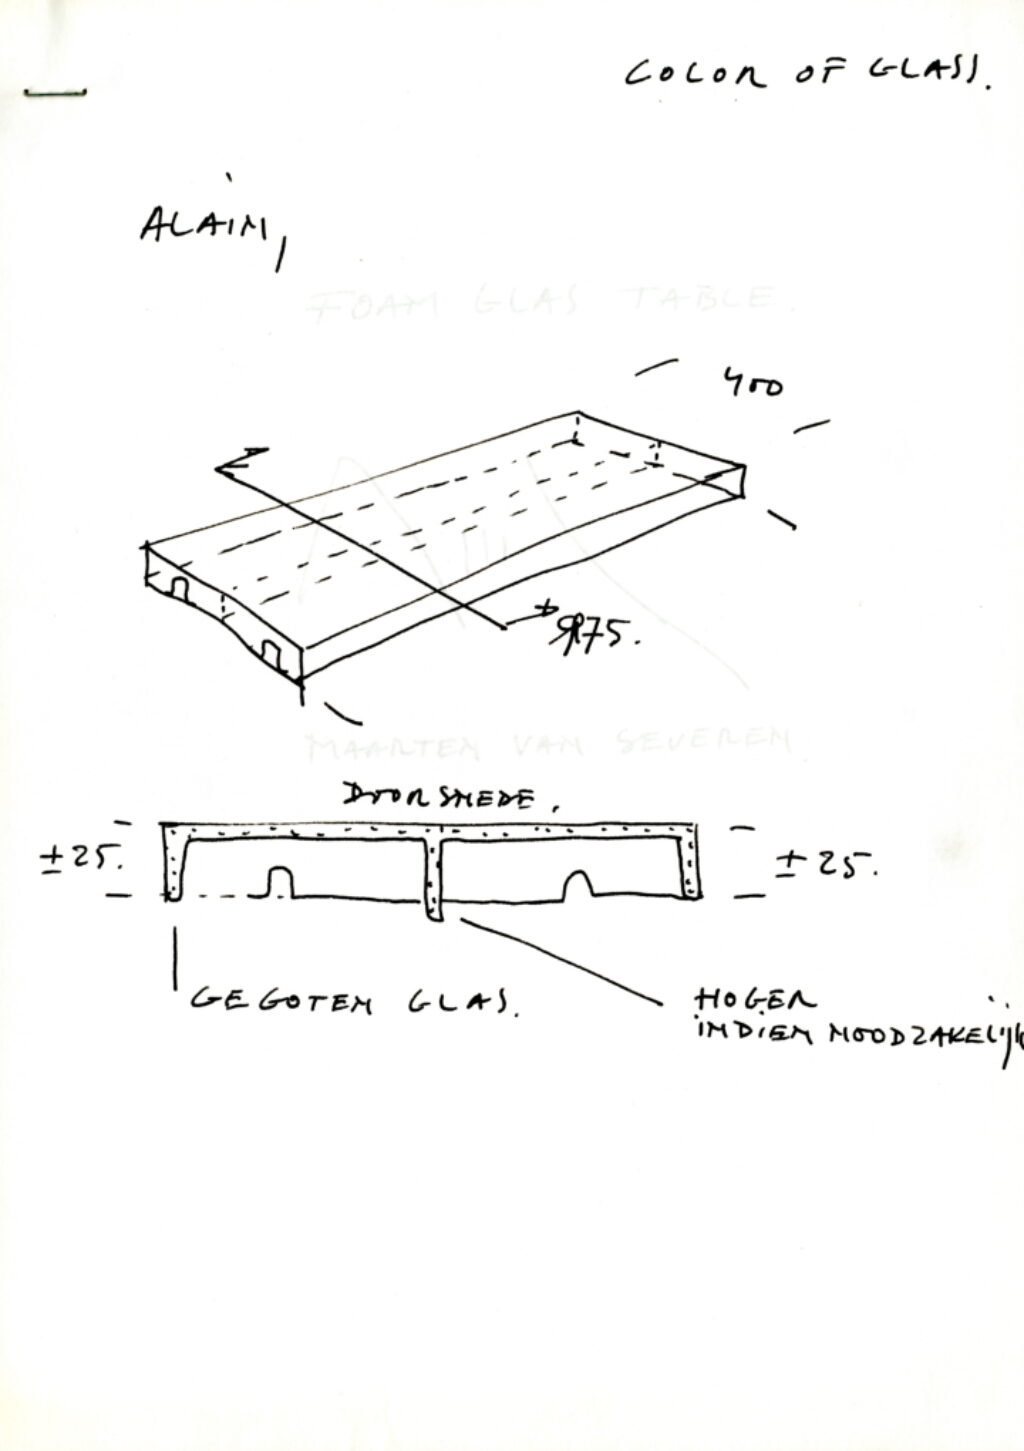 COLOR OF GLASS.
ALAIN,
FOAM GLAS TABLE.
400
75.
MAARTEN VAN SEVEREN
DOORSNEDE.
±25.
± 25.
GEGOTEN GLAS.
HOGER
INDIEN NOODZAKELIJK